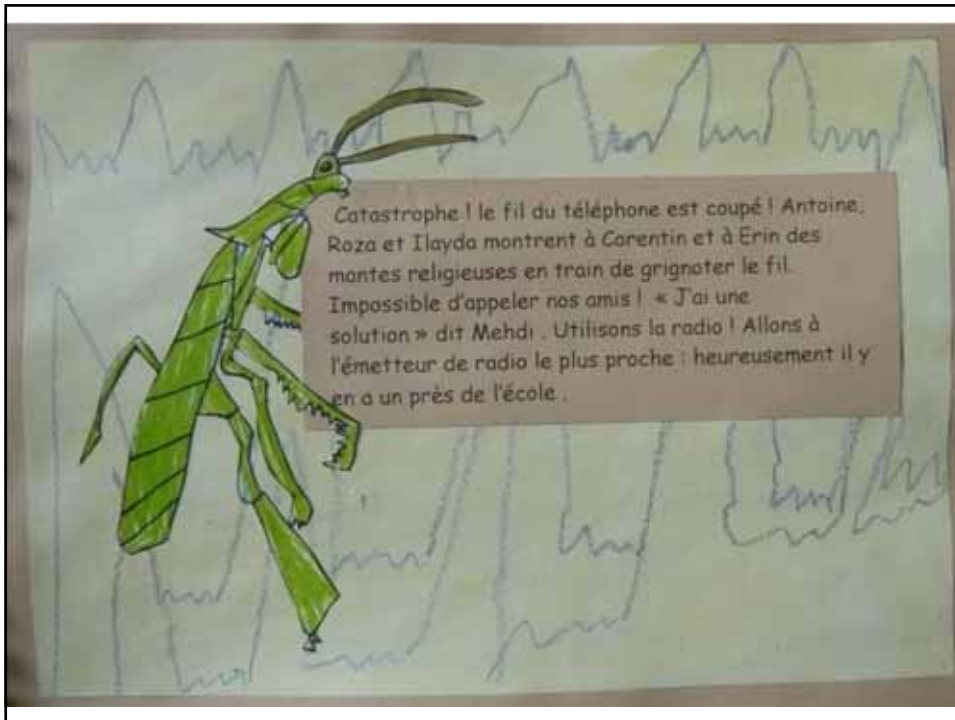 Catastrophe ! le fil du téléphone est coupé ! Antoine,
Roza et Ilayda montrent à Corentin et à Erin des
mantes religieuses en train de grignoter le fil.
Impossible d'appeler nos amis ! « J'ai une
solution » dit Mehdi . Utilisons la radio ! Allons à
l'émetteur de radio le plus proche : heureusement il y
en a un près de l'école .